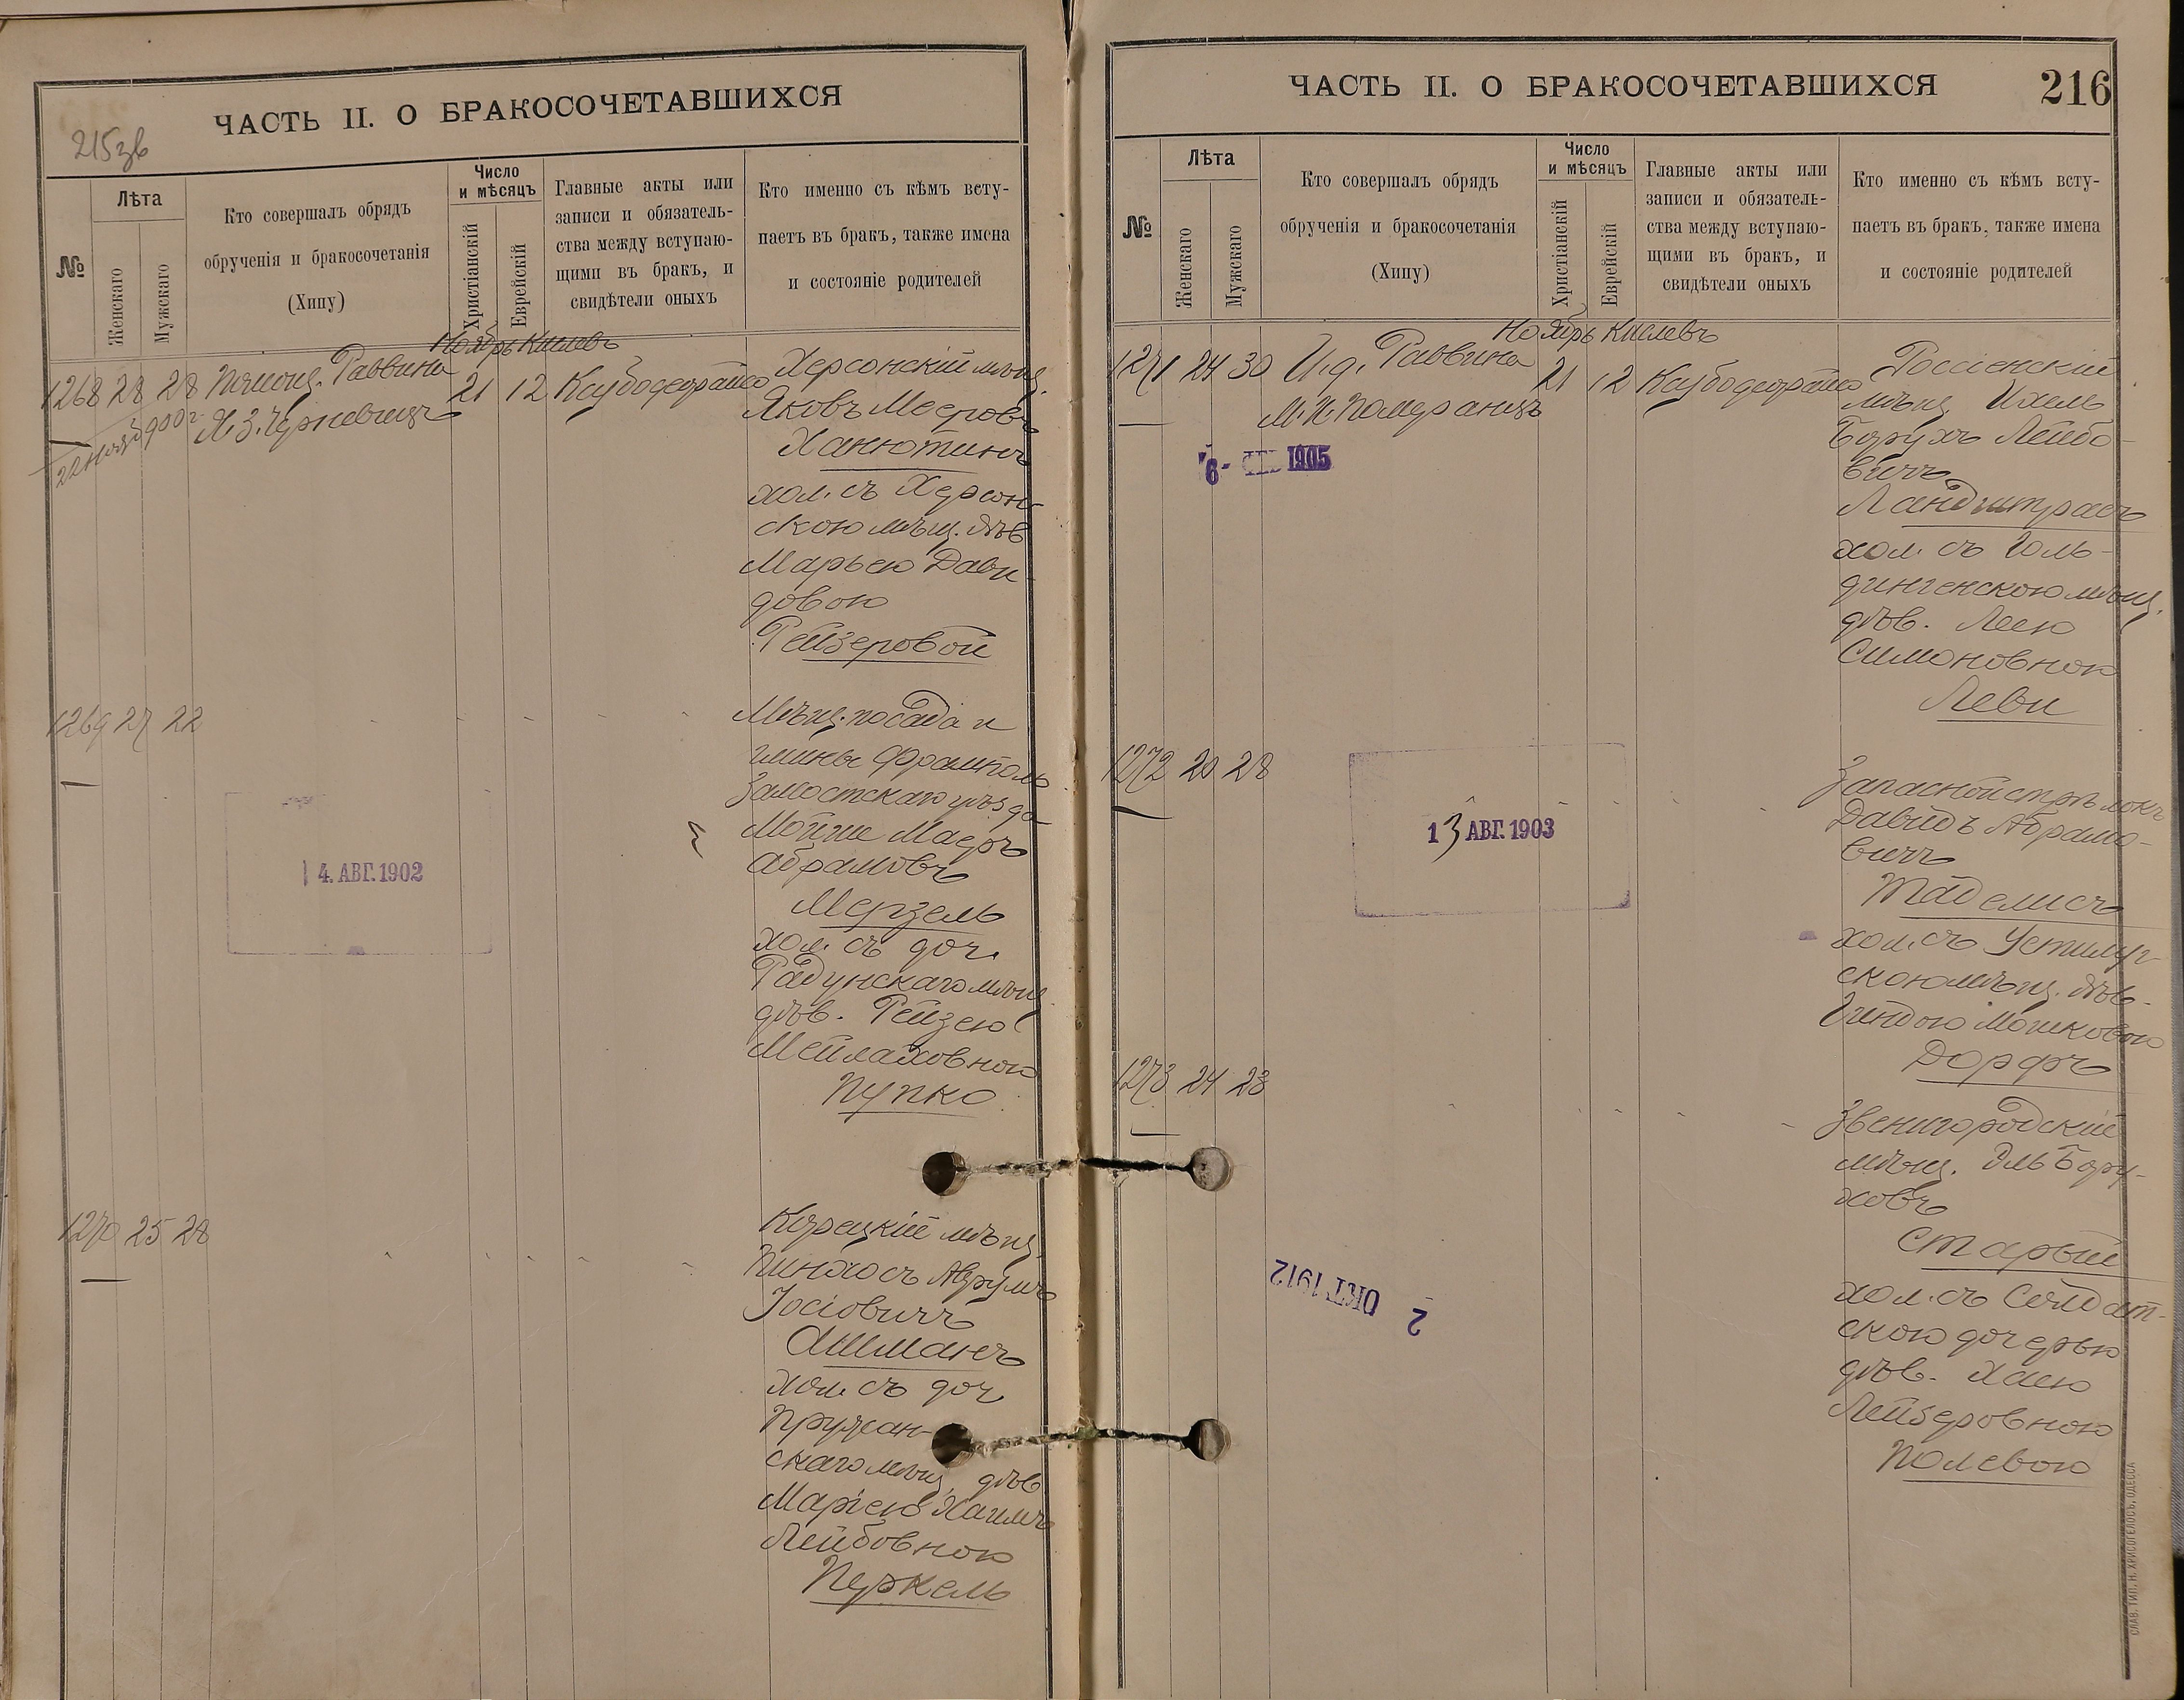 ЧАСТЬ II. О БРАКОСОЧЕТАВШИХСЯ
215зв
№
Лѣта
Женскаго
Мужскаго
Кто совершалъ обрядъ
обрученія и бракосочетанія
(Хипу)
Число
и мѣсяцъ
Христіанскій
Еврейскій
Главные акты или
записи и обязатель-
ства между вступаю-
щими въ бракъ, и
свидѣтели оныхъ
Кто именно съ кѣмъ всту-
паетъ въ бракъ, также имена
и состояніе родителей
Ноябрь Кислевъ
1268 28 28 Помощ. Раввина 21 12
Херсонскій мѣщ.
Яковъ Мееровъ
Ханютинъ
хол. съ Херсон
скою мѣщ. дѣв
Марьею Дави-
довою
Рейзеровой
1269 27 22
Мѣщ. посада и
гмины Франполь
Замостскаго уѣзда
Мойше Маеръ
Абрамовъ
Мерзель
хол. съ доч.
Радунскаго мѣщ.
дѣв. Рейзею
Мейлаховною
Пупко
4. АВГ. 1902
1270 25 28
Корецкій мѣщ.
Пинхосъ Аврумъ
Іосіовичъ
Ашманъ
хол. съ доч
Пружан-
скаго мѣщ. дѣв
Маріею Хаимъ
Лейбовною
Перкель
ЧАСТЬ II. О БРАКОСОЧЕТАВШИХСЯ
216
№
Лѣта
Женскаго
Мужскаго
Кто совершалъ обрядъ
обрученія и бракосочетанія
(Хипу)
Число
и мѣсяцъ
Христіанскій
Еврейскій
Главные акты или
записи и обязатель-
ства между вступаю-
щими въ бракъ, и
свидѣтели оныхъ
Кто именно съ кѣмъ всту-
паетъ въ бракъ, также имена
и состояніе родителей
Ноябрь Кислевъ
1271 24 30 И.д. Раввина 21 12
М. И. Померанцъ
6- 1905
Россіенскій
мѣщ. Ихель
Борухъ Лейбо-
вичъ
Ландштрасъ
хол. съ Голь-
дингенскою мѣщ.
дѣв. Леею
Симоновною
Леви
1272 20 28
Запасной стрѣлокъ
Давидъ Абрамо-
вичъ
Таделисъ
хол. съ Устилуг-
скою мѣщ. дѣв.
Гиндою Мошковою
Дорфъ
13 АВГ. 1903
1273 24 23
Звенигородскій
мѣщ. Эль Бору-
ховъ
Старый
хол. съ Солдат-
скою дочерью
дѣв. Хаею
Лейзеровною
Полевою
2 ОКТ. 1912
СЛАВ. ТИП. Н. ХРИСОГЕЛОСЪ, ОДЕССА